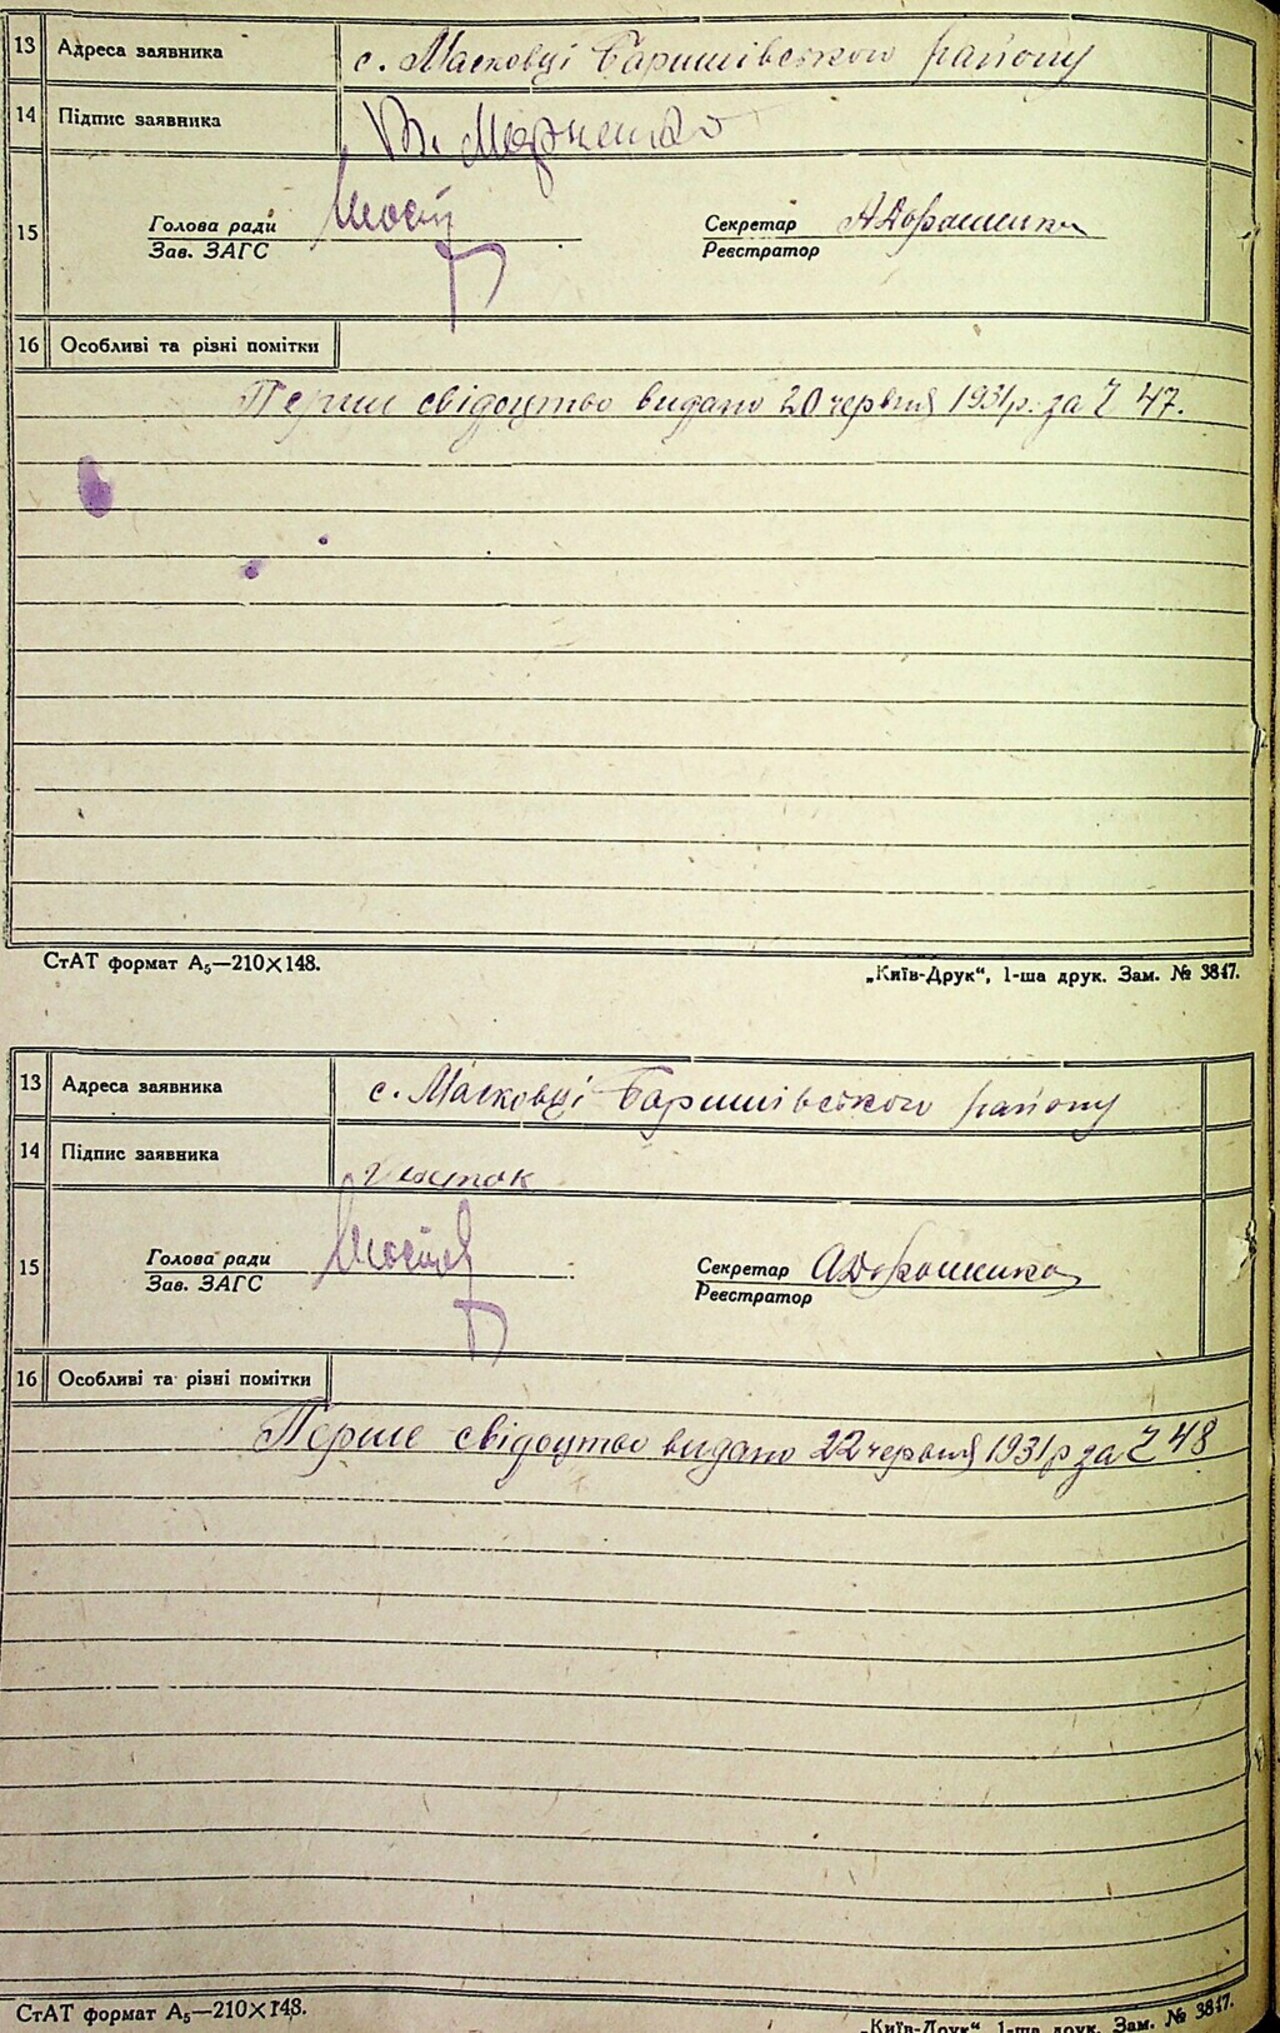 13 Адреса заявника с. Масковці Баришівського району
14 Підпис заявника
15 Голова ради Секретар АДорошенко
Зав. ЗАГС Реєстратор
16 Особливі та різні помітки
Перше свідоцтво видано 20 червня 1931р. за Ч 47.
СтАТ формат А₅—210×148. „Київ-Друк“, 1-ша друк. Зам. № 3847.
13 Адреса заявника с. Масковці Баришівського району
14 Підпис заявника
15 Голова ради Секретар АДорошенко
Зав. ЗАГС Реєстратор
16 Особливі та різні помітки
Перше свідоцтво видано 22 червня 1931р за Ч 48
СтАТ формат А₅—210×148. „Київ-Друк“, 1-ша друк. Зам. № 3847.